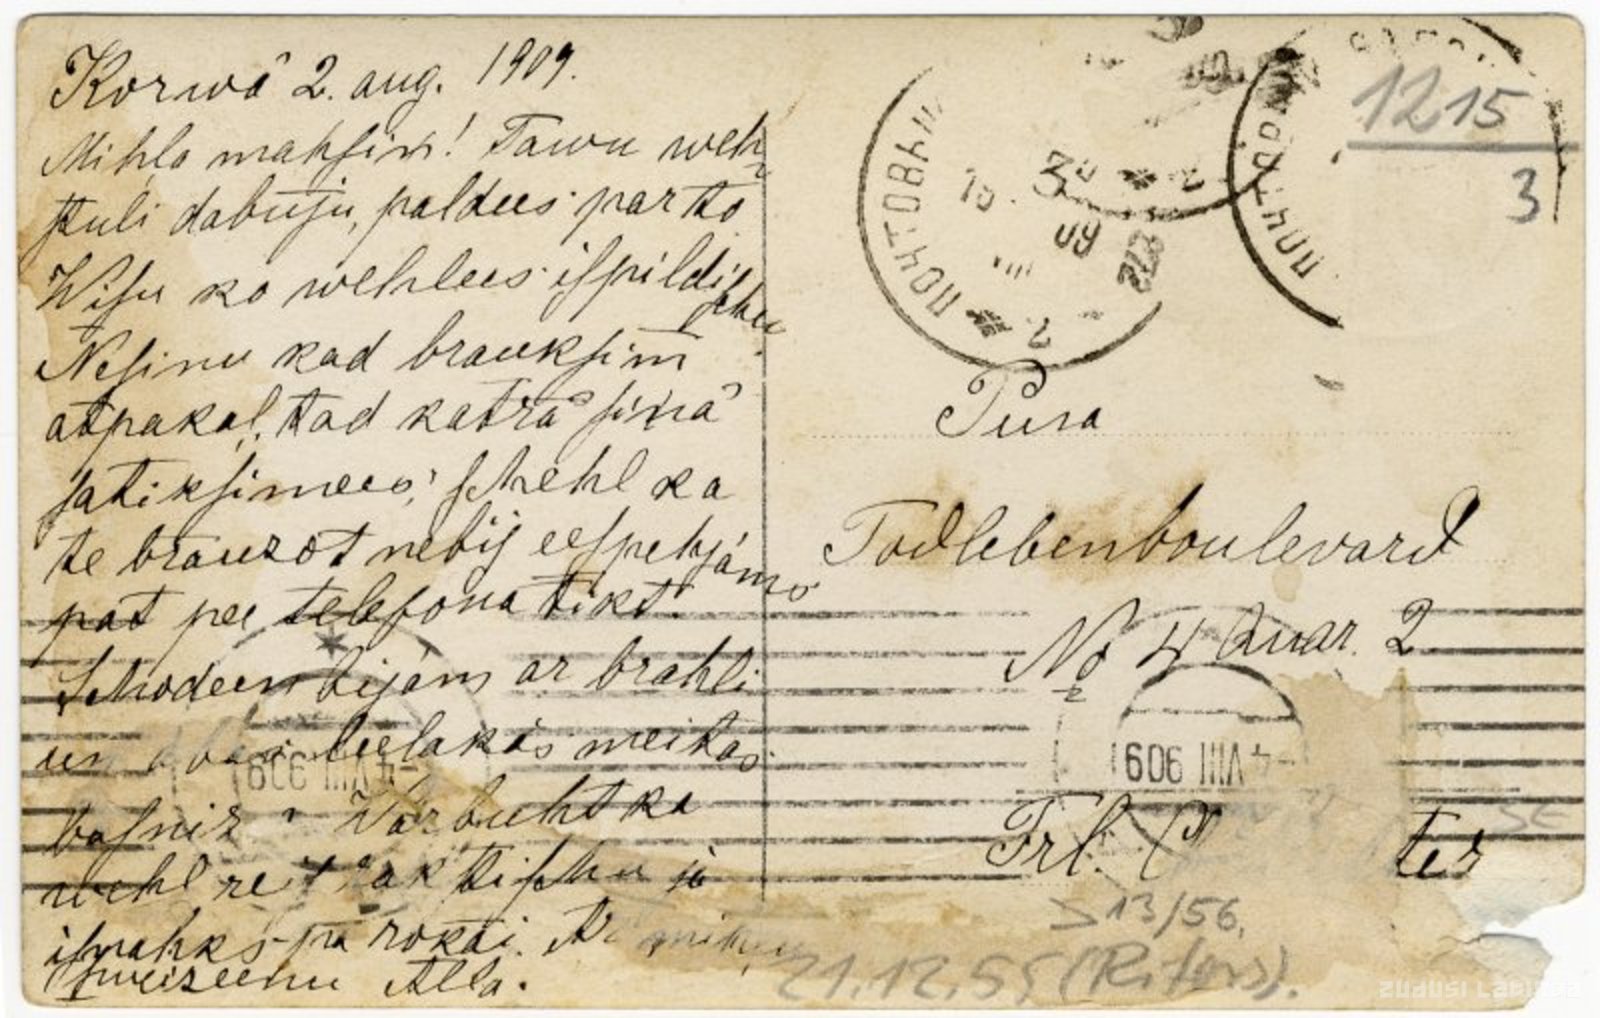 Korwâ 2. aug. 1909.
Mihļo mahsiņ! Tawu weh-
stuli dabuju, paldees par to
Wisu ko wehlees ispildi-
schu.
Nesinu kad brauksim
atpakaļ, tad katrâ siņâ
satiksimees, schehl ka
te brauzot nebij eespehjams
pat pee telefona tikt.
Schodeen bijam ar brahli
un leelakās meitas
basnizâ Warbuht ka
wehl rakstischu ja
isnahks pa rokai. Ar
sweizeenu Alla.
ПОЧТОВЫЙ
10. 3
VIII
09
2
ПОЧТОВЫЙ
1215
3
Pura
Todlebenboulevard
No 4 Quar. 2
-4 VIII 909
-4 VIII 909
Frl. P ter
13/56.
21.12.55 (Riters).
ZUDUSI LATVIJA